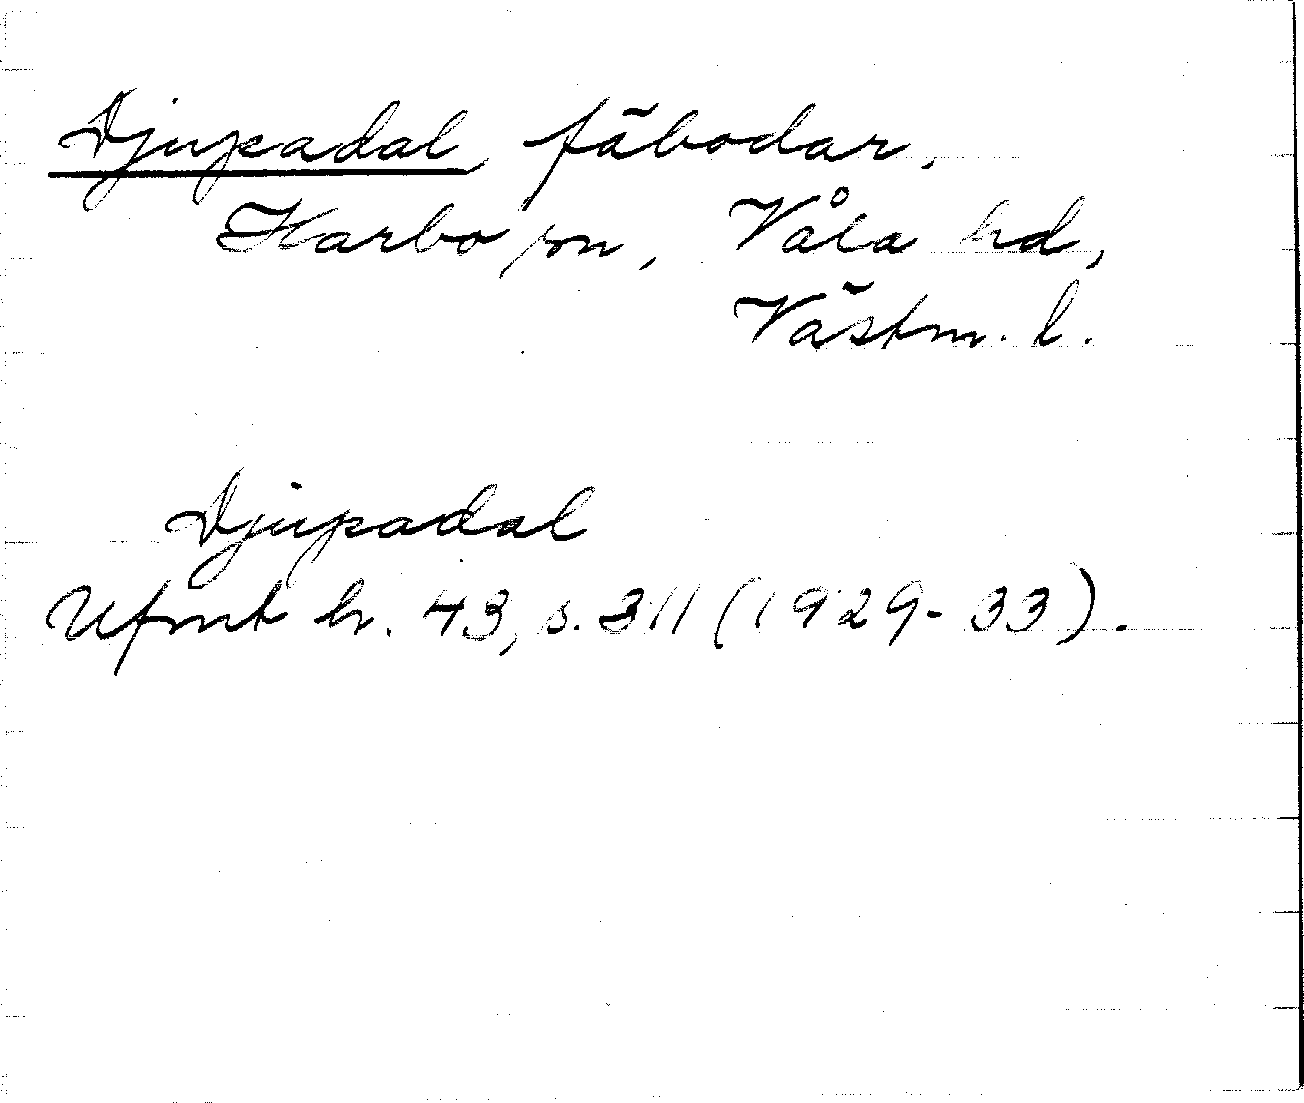 Djupadal, fäbodar,
Harbo sn, Våla hd,
Västm. l.
Djupadal
Ufmt h. 43, s. 311 (1929-33).